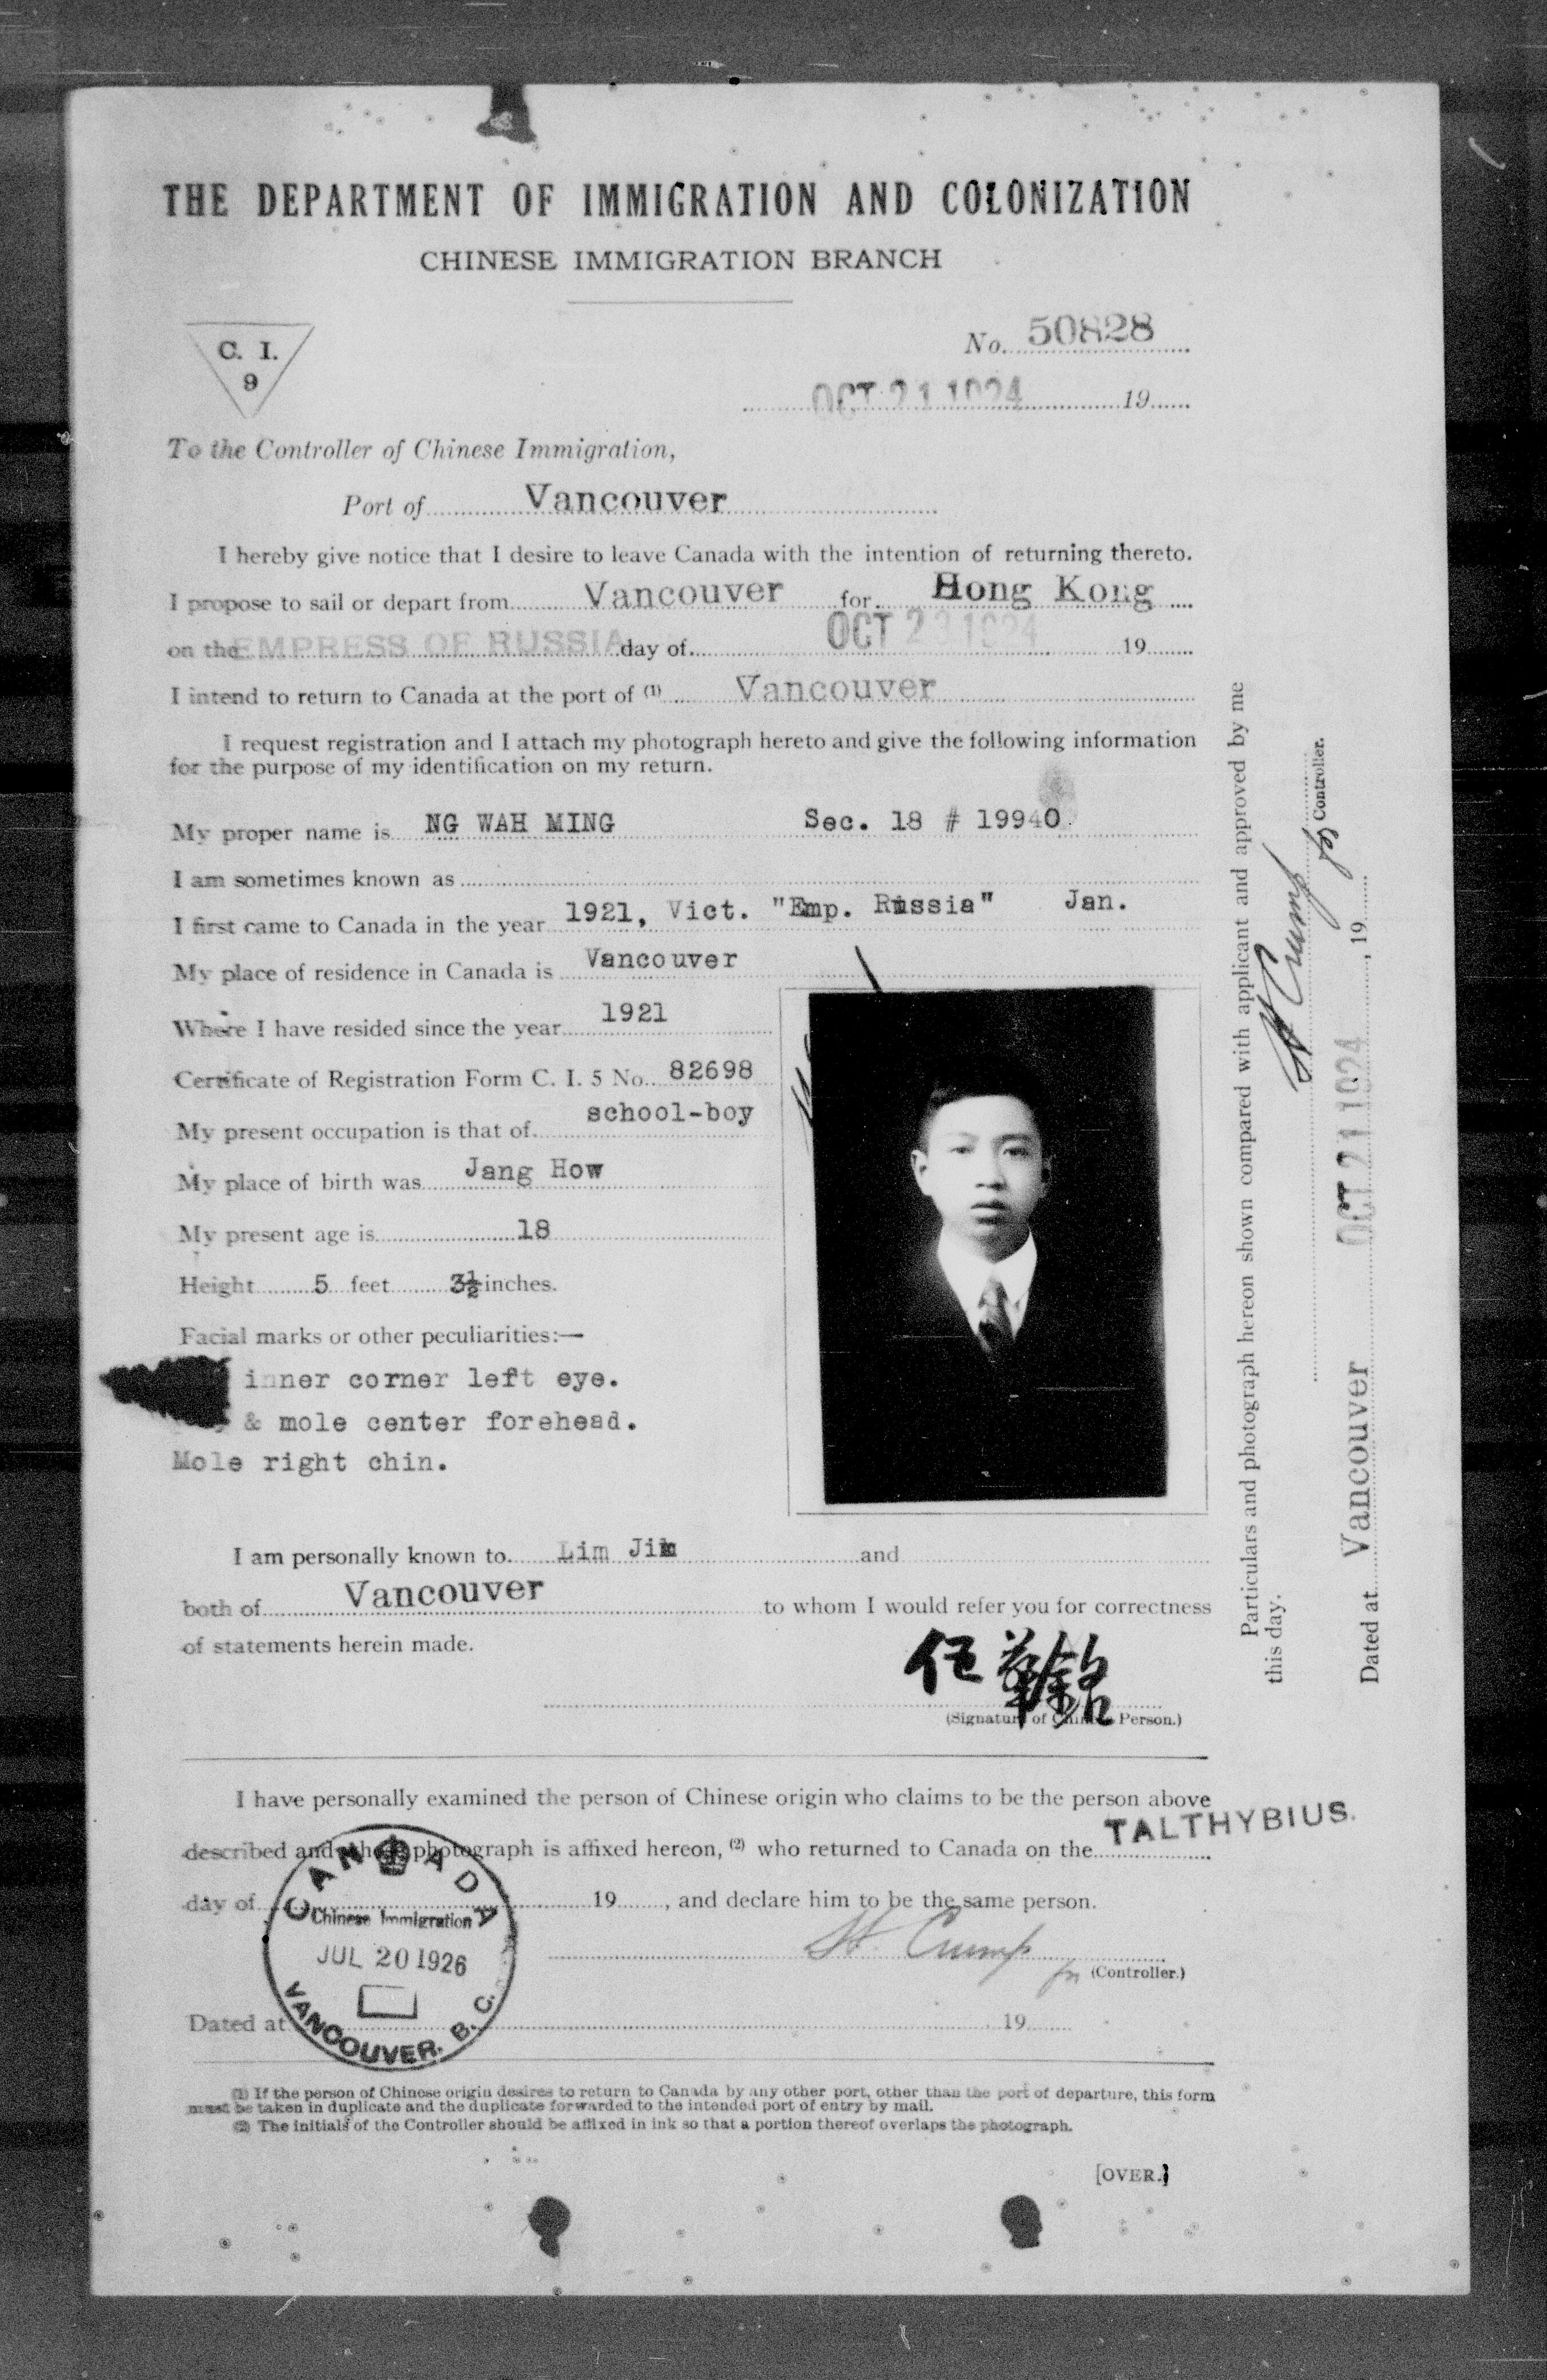 THE DEPARTMENT OF IMMIGRATION AND COLONIZATION
CHINESE IMMIGRATION BRANCH
C. I.
9
No. 50828
OCT 21 1924 19
To the Controller of Chinese Immigration,
Port of Vancouver
I hereby give notice that I desire to leave Canada with the intention of returning thereto.
I propose to sail or depart from Vancouver for Hong Kong
on the EMPRESS OF RUSSIA day of OCT 23 1924 19
I intend to return to Canada at the port of (1) Vancouver
I request registration and I attach my photograph hereto and give the following information
for the purpose of my identification on my return.
My proper name is NG WAH MING Sec. 18 # 19940
I am sometimes known as
I first came to Canada in the year 1921, Vict. "Emp. Russia" Jan.
My place of residence in Canada is Vancouver
Where I have resided since the year 1921
Certificate of Registration Form C. I. 5 No. 82698
My present occupation is that of school-boy
My place of birth was Jang How
My present age is 18
Height 5 feet 3½ inches.
Facial marks or other peculiarities:—
inner corner left eye.
& mole center forehead.
Mole right chin.
I am personally known to Lim Jim and
both of Vancouver to whom I would refer you for correctness
of statements herein made.
伍華銘
(Signature of Chinese Person.)
I have personally examined the person of Chinese origin who claims to be the person above
described and whose photograph is affixed hereon, (2) who returned to Canada on the TALTHYBIUS.
day of 19, and declare him to be the same person.
CANADA
Chinese Immigration
JUL 20 1926
VANCOUVER. B. C.
Crump for (Controller.)
Dated at 19
(1) If the person of Chinese origin desires to return to Canada by any other port, other than the port of departure, this form
must be taken in duplicate and the duplicate forwarded to the intended port of entry by mail.
(2) The initials of the Controller should be affixed in ink so that a portion thereof overlaps the photograph.
[OVER.]
Particulars and photograph hereon shown compared with applicant and approved by me
this day.
Crump for Controller.
Dated at Vancouver OCT 21 1924, 19